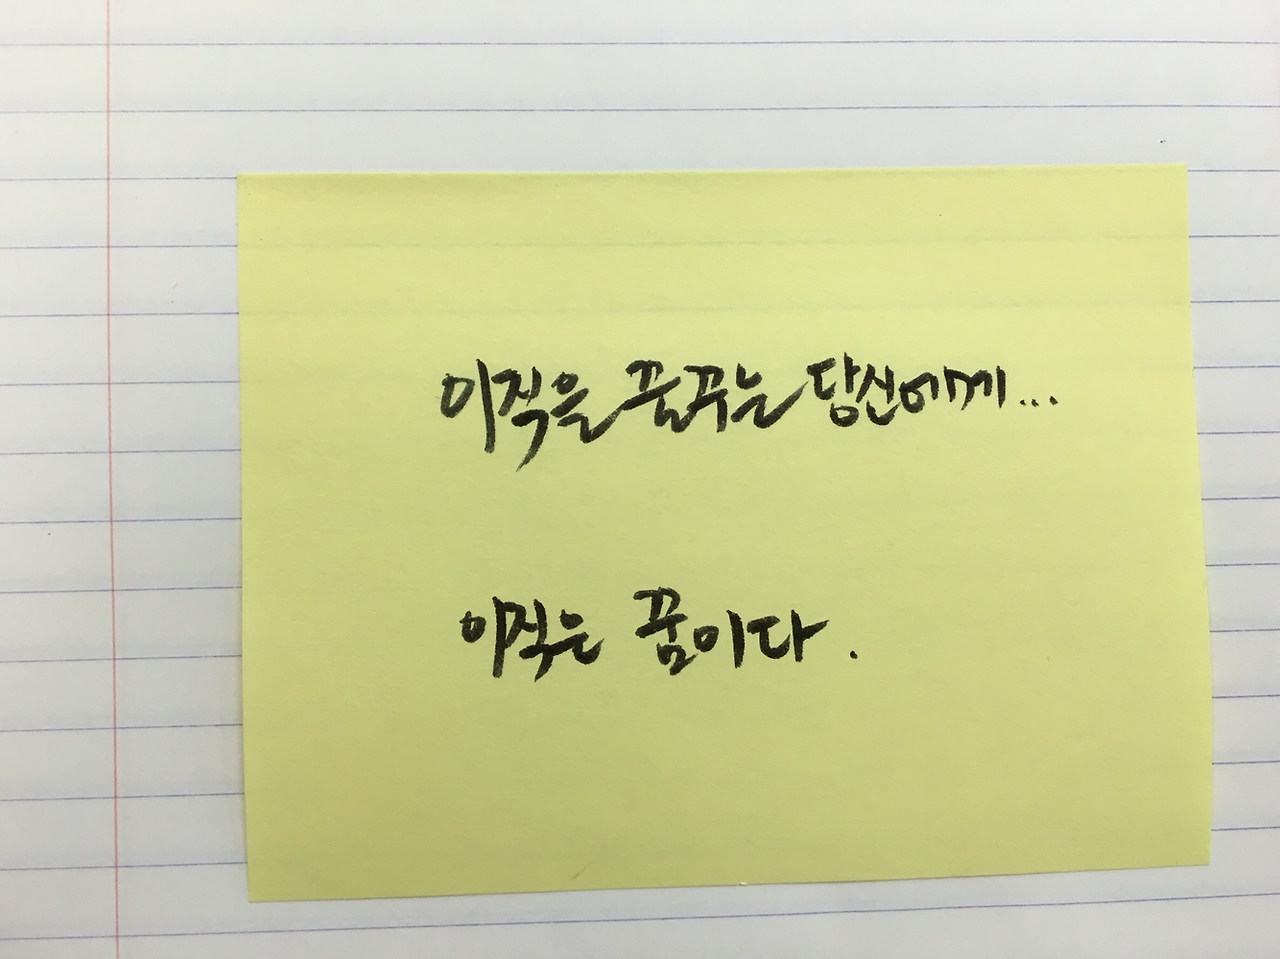 이직을 꿈꾸는 당신에게...
이직은 꿈이다.